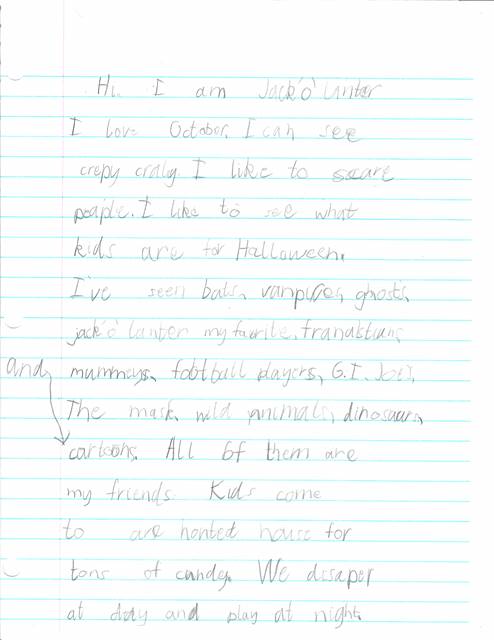 Hi. I am Jack'o' Lanter
I love October. I can see
crepy craly I like to scare
peaple. I like to see what
kids are for Halloween.
I've seen bats, vanpires, ghosts,
jack'o' lanter my favrite, franaktians,
and mummeys, football players, G.I. Joe's,
The mask, wild animals, dinosaurs,
cartoons. All of them are
my friends. Kids come
to are honted house for
tons of candy. We dissaper
at day and play at night.